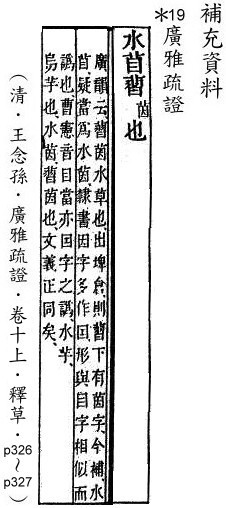 補充資料
*19 廣雅疏證
水苜茵也
廣韻云茵水草也出埤倉則下有茵字今補水
苜疑當爲水茵隸書因字多作囙形與目字相似而
譌也曹憲音目當亦囙字之譌水芋
烏芋也水茵茵也文義正同矣
(清・王念孫・廣雅疏證・卷十上・釋草・p326~p327)